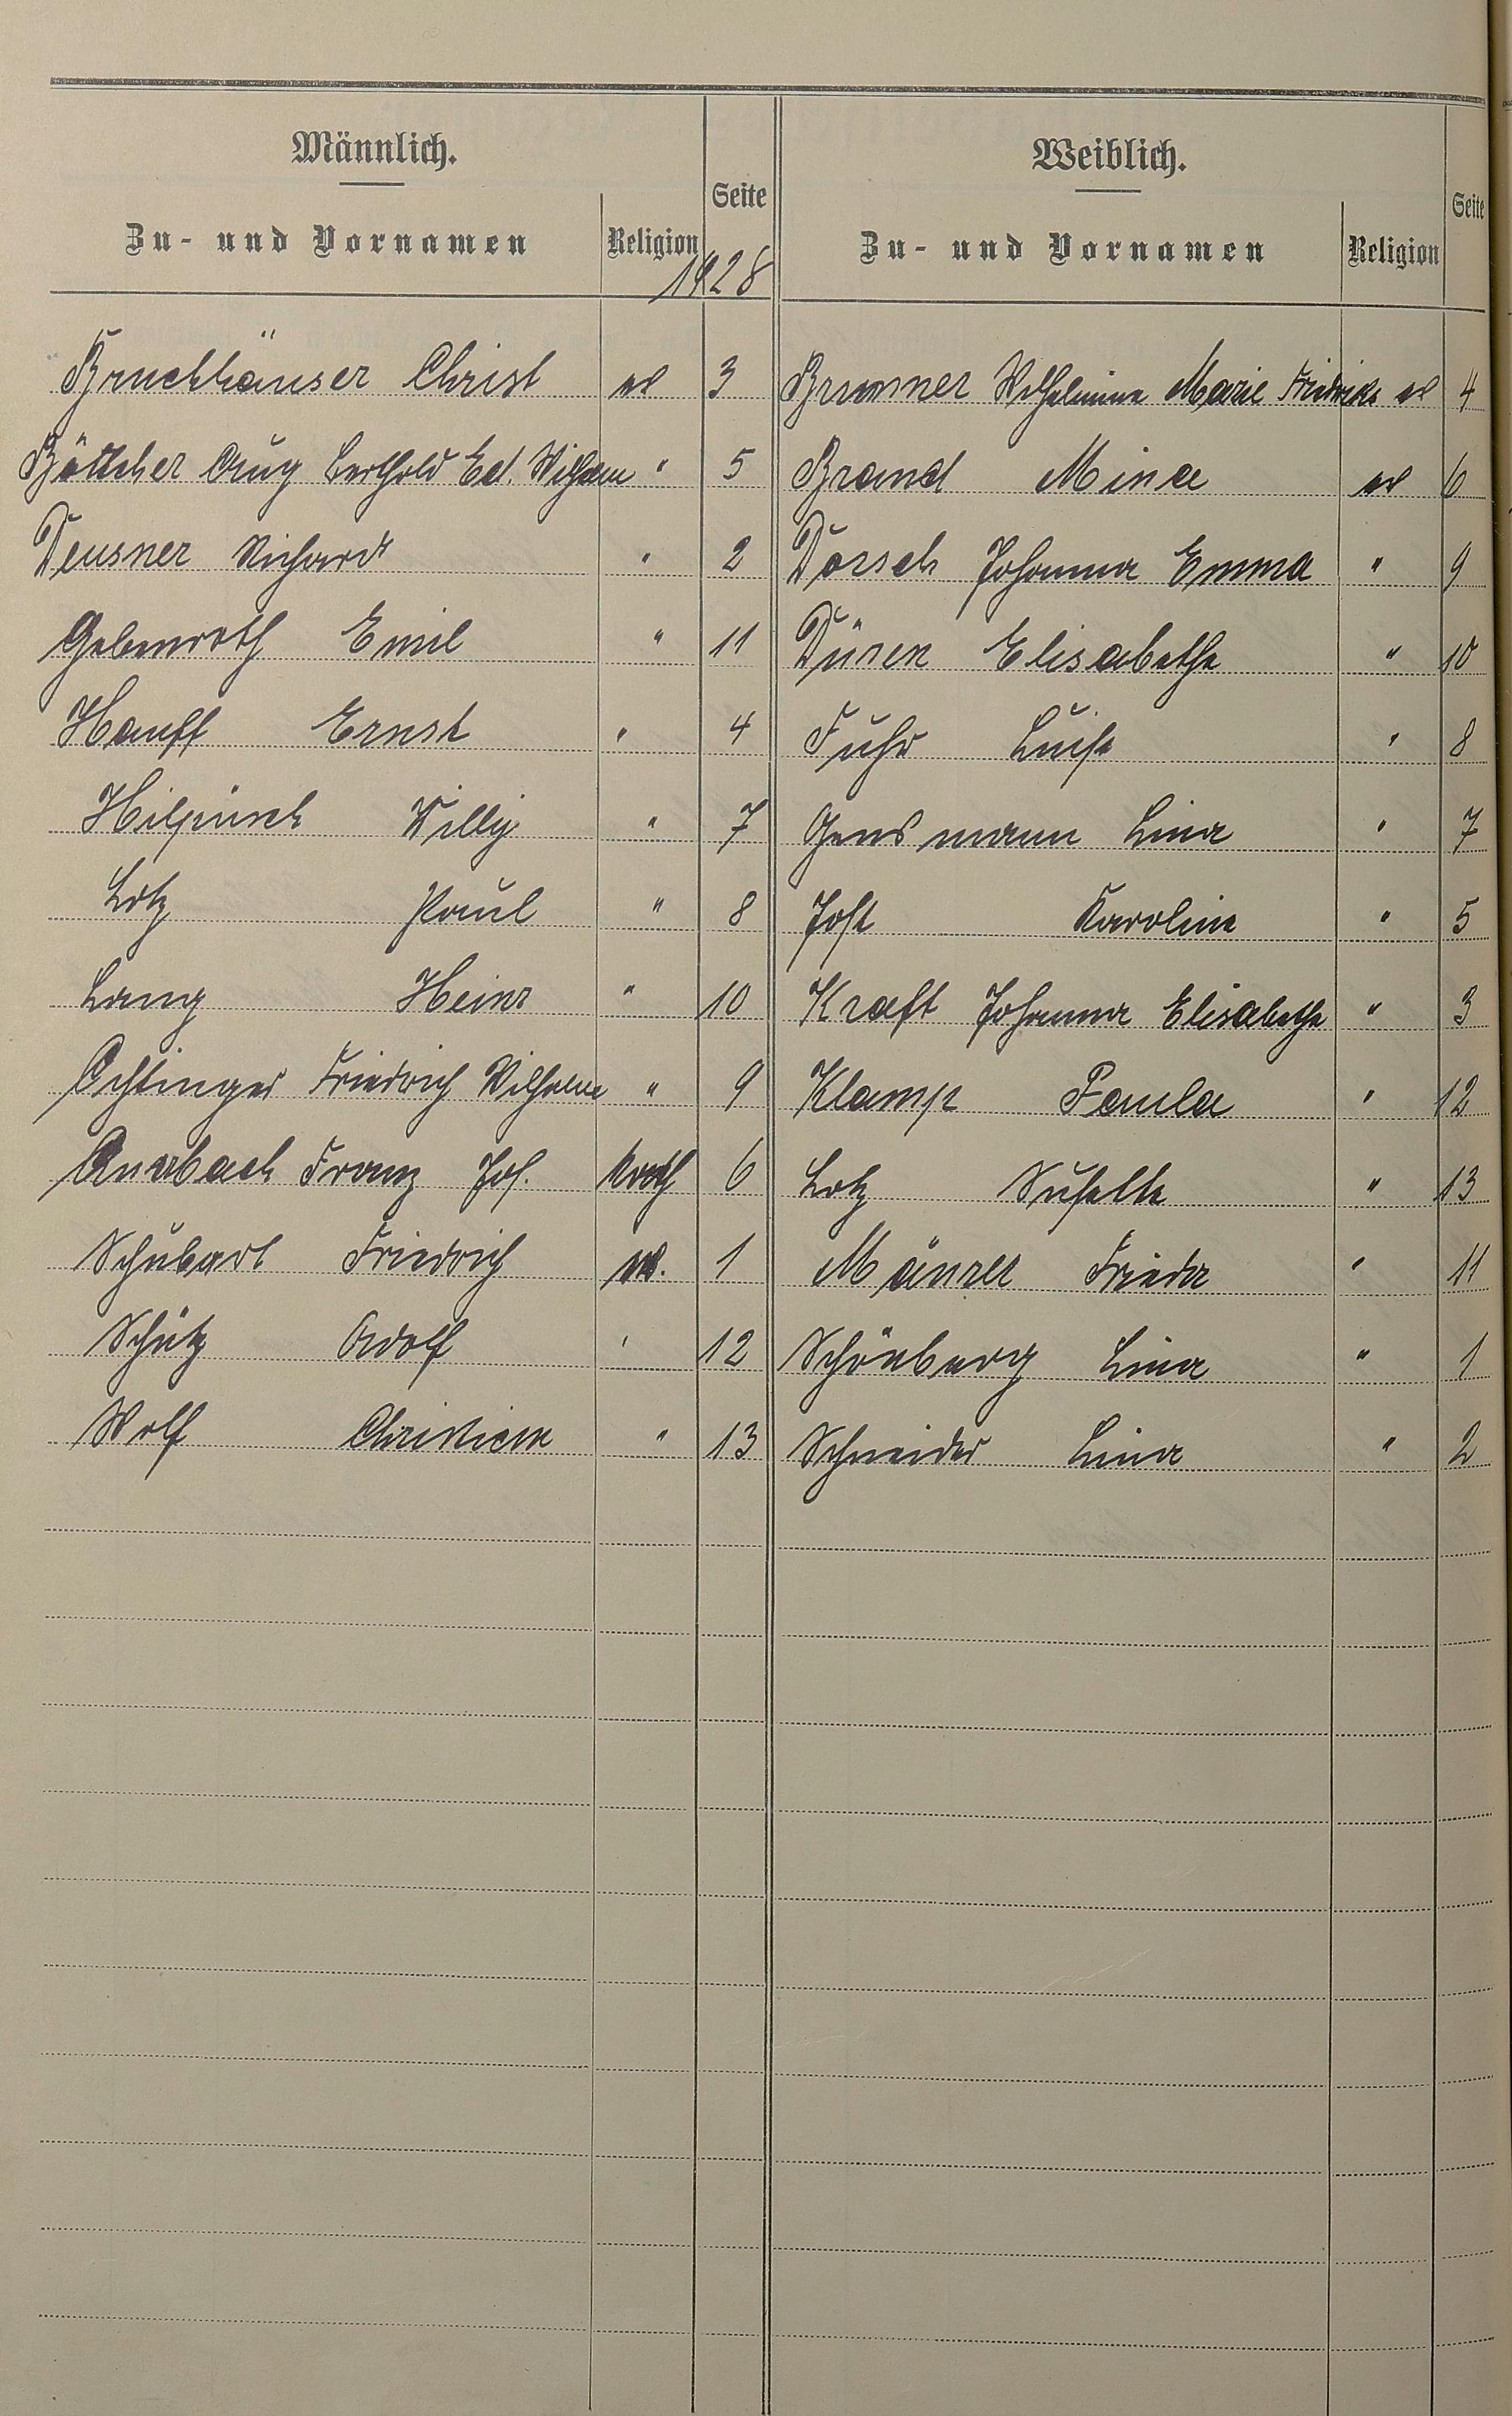 Männlich.
Zu- und Vornamen
Religion
Seite
1928
Bruchhäuser Christ ev 3
Böttcher Aug Berthold Ed. Wilhelm " 5
Deusner Richard " 2
Gebenroth Emil " 11
Hanff Ernst " 4
Hilpüsch Willy " 7
Lotz Paul " 8
Lang Heinr " 10
Friedrich Wilhelm " 9
Franz Jos. kath 6
Schubart Friedrich ev. 1
Schütz Adolf " 12
Wolf Christian " 13
Weiblich.
Zu- und Vornamen
Religion
Seite
Brunner Wilhelmine Marie Friedrike ev 4
Brand Mina ev 6
Dorsch Johanna Emma " 9
Düren Elisabetha " 10
Fuhr Luise " 8
Gensmann Lina " 7
Jost Karoline " 5
Kraft Johanna Elisabetha " 3
Klamp Paula " 12
Lotz " 13
Mänzer Frieda " 11
Schönberg Lina " 1
Schneider Lina " 2